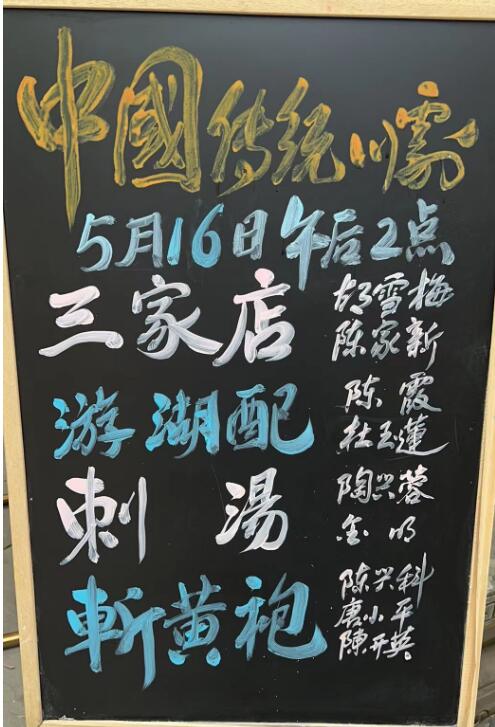 中國传统川劇
5月16日午后2点
三家店 胡雪梅
陈家新
游湖配 陈霞
杜玉蓮
刺湯 陶兴蓉
金明
斬黄袍 陈兴科
唐小平
陳开英